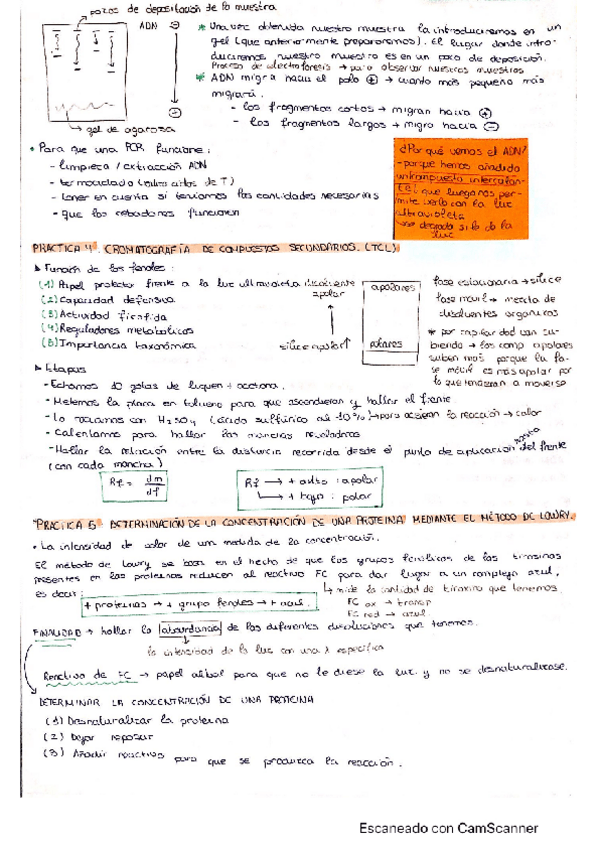 pozos de deposición de la muestra
ADN ⊖
* Una vez obtenida nuestra muestra la introduciremos en un
gel (que anteriormente prepararemos). El lugar donde intro-
duciremos nuestra muestra es en un pozo de deposición.
Proceso de electroforesis → para observar nuestras muestras
* ADN migra hacia el polo ⊕ → cuanto más pequeño más
migrará.
- los fragmentos cortos → migran hacia ⊕
- los fragmentos largos → migra hacia ⊖
gel de agarosa
• Para que una PCR funcione:
- limpieza / extracción ADN
- termociclado (varios ciclos de T)
- tener en cuenta si teníamos las cantidades necesarias
- que los cebadores funcionen
¿Por qué vemos el ADN?
- porque hemos añadido
un compuesto intercalan-
te que luego nos per-
mite verlo con la luz
ultravioleta
se degrada si le da la
luz
PRACTICA 4. CROMATOGRAFÍA DE COMPUESTOS SECUNDARIOS. (TCL)
Función de los fenoles:
(1) Papel protector frente a la luz ultravioleta
(2) Capacidad defensiva
(3) Actividad
(4) Reguladores metabólicos
(5) Importancia taxonómica
disolvente
apolar
sílice
apolares
polares
fase estacionaria → sílice
fase móvil → mezcla de
disolventes orgánicos
* por capilaridad van su-
biendo → los comp apolares
suben más porque la fa-
se móvil es más apolar por
lo que tenderán a moverse
Etapas
- Echamos 10 gotas de liquen + acetona.
- Metemos la placa en tolueno para que ascendieran y hallar el frente
- Lo rociamos con H2SO4 (ácido sulfúrico al 10%) → para la reacción → calor
- Calentamos para hallar las manchas reveladoras
- Hallar la relación entre la distancia recorrida desde el punto de aplicación del frente
(con cada mancha)
Rf = dm/df
Rf → + alto : apolar
→ + bajo : polar
PRACTICA 5 DETERMINACIÓN DE LA CONCENTRACIÓN DE UNA PROTEINA MEDIANTE EL MÉTODO DE LOWRY.
• La intensidad de color da una medida de la concentración.
El método de Lowry se basa en el hecho de que los grupos fenólicos de las tirosinas
presentes en las proteínas reducen al reactivo FC para dar lugar a un complejo azul,
es decir:
+ proteínas → + grupo fenoles → + azul.
mide la cantidad de tirosina que tenemos.
FC ox → transp
FC red → azul.
FINALIDAD → hallar la absorbancia de las diferentes disoluciones que tenemos.
la intensidad de la luz con una λ específica
Reactivo de FC → papel albal para que no le diese la luz y no se desnaturalizase.
DETERMINAR LA CONCENTRACIÓN DE UNA PROTEINA
(1) Desnaturalizar la proteina
(2) Dejar reposar
(3) Añadir reactivo para que se produzca la reacción.
Escaneado con CamScanner